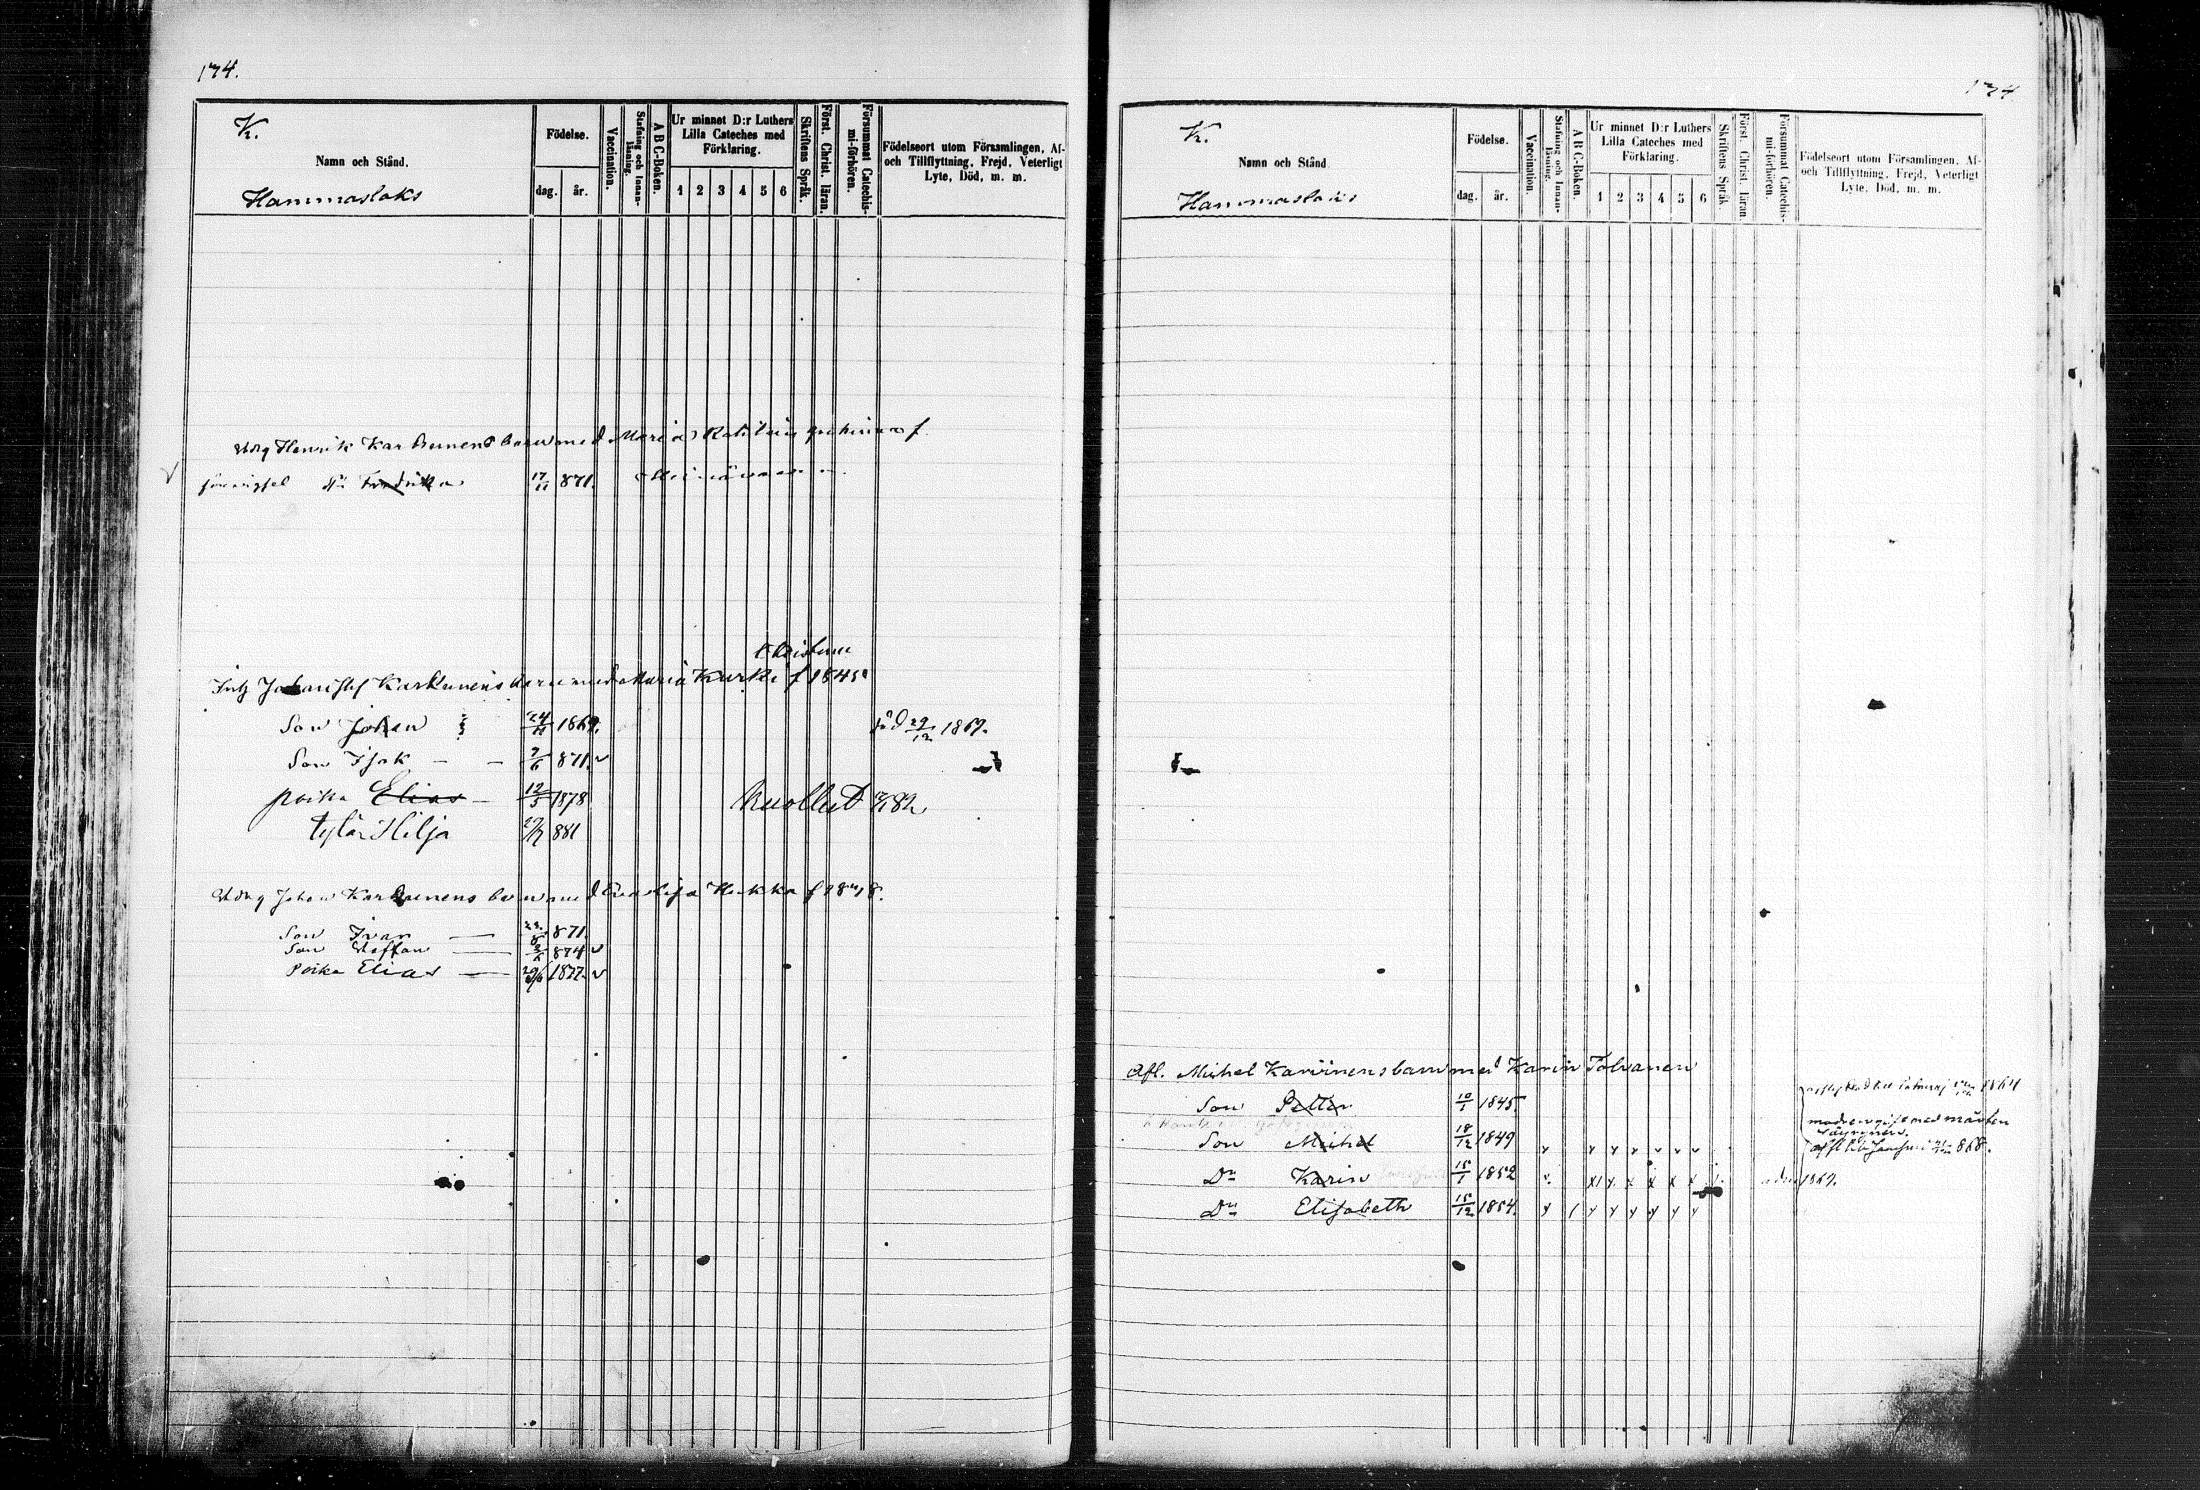 174.
K.
Namn och Stånd.
Hammaslaks
Födelse.
dag. år.
Vaccination.
Stafning och Innanläsning.
A B C-Boken.
Ur minnet D:r Luthers
Lilla Cateches med
Förklaring.
1 2 3 4 5 6
Skriftens Språk.
Först. Christ. läran.
Försummat Catechismi-förhören.
Födelseort utom Församlingen, Af-
och Tillflyttning, Frejd, Veterligt
Lyte, Död, m. m.
Henrik Karkunens barn med Maria
Dr Fredrika 17/11 871.
Christina
Karkunens barn med Maria Kurki f 1845
Son Johan 24/11 1869. död 29/12 1869.
Son Isak — — 7/6 871.
poika Elias — 12/5 1878 kuollut 82
tytär Hilja 881
Johan Karkunens barn med Hukka f 1848.
Son Ivar — 871.
Son Staffan — 874
Poika Elias — 1877.
174
K.
Namn och Stånd.
Hammaslaks
Födelse.
dag. år.
Vaccination.
Stafning och Innanläsning.
A B C-Boken.
Ur minnet D:r Luthers
Lilla Cateches med
Förklaring.
1 2 3 4 5 6
Skriftens Språk.
Först. Christ. läran.
Försummat Catechismi-förhören.
Födelseort utom Församlingen, Af-
och Tillflyttning, Frejd, Veterligt
Lyte, Död, m. m.
Afl. Michel Karvinens barn med Karin Tolvanen
Son Petter 10/1 1845. 1864
modren gift med Mårten
Son Michel 18/12 1849 868.
Dr Karin 15/1 1852 1869.
Dr Elisabeth 15/12 1854.